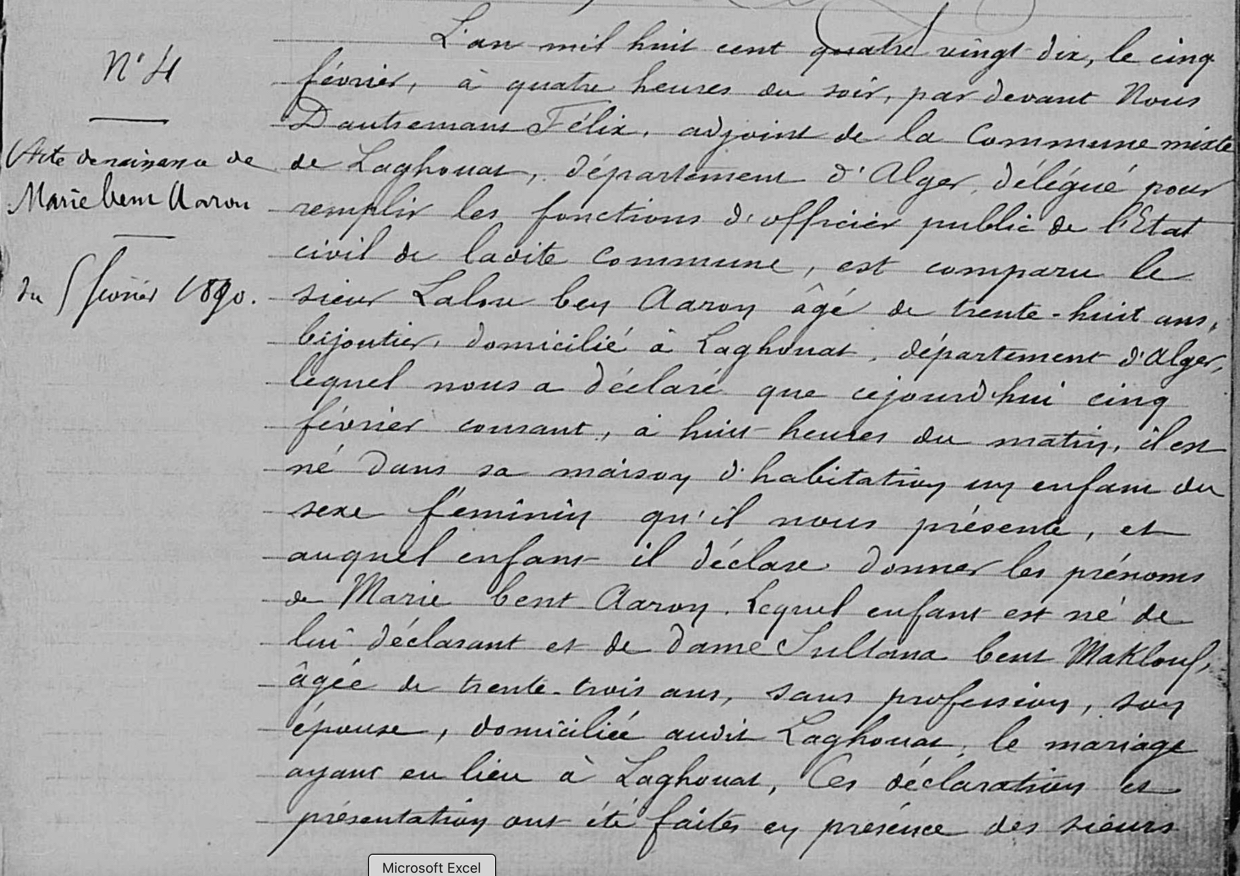 N° 4
Acte de naissance de
Marie bent Aaron
du 5 février 1890.
L'an mil huit cent quatre vingt dix, le cinq
février, à quatre heures du soir, par devant Nous
Dautremans Félix, adjoint de la Commune mixte
de Laghouat, département d'Alger, délégué pour
remplir les fonctions d'officier public de l'Etat
civil de ladite Commune, est comparu le
sieur Lalou ben Aaron âgé de trente-huit ans,
bijoutier, domicilié à Laghouat, département d'Alger,
lequel nous a déclaré que cejourd'hui cinq
février courant, à huit heures du matin, il est
né dans sa maison d'habitation un enfant du
sexe féminin qu'il nous présente, et
auquel enfant il déclare donner les prénoms
de Marie bent Aaron. Lequel enfant est né de
lui déclarant et de dame Sultana bent Maklouf,
âgée de trente-trois ans, sans profession, son
épouse, domiciliée audit Laghouat, le mariage
ayant eu lieu à Laghouat, Ces déclaration et
présentation ont été faites en présence des sieurs
Microsoft Excel